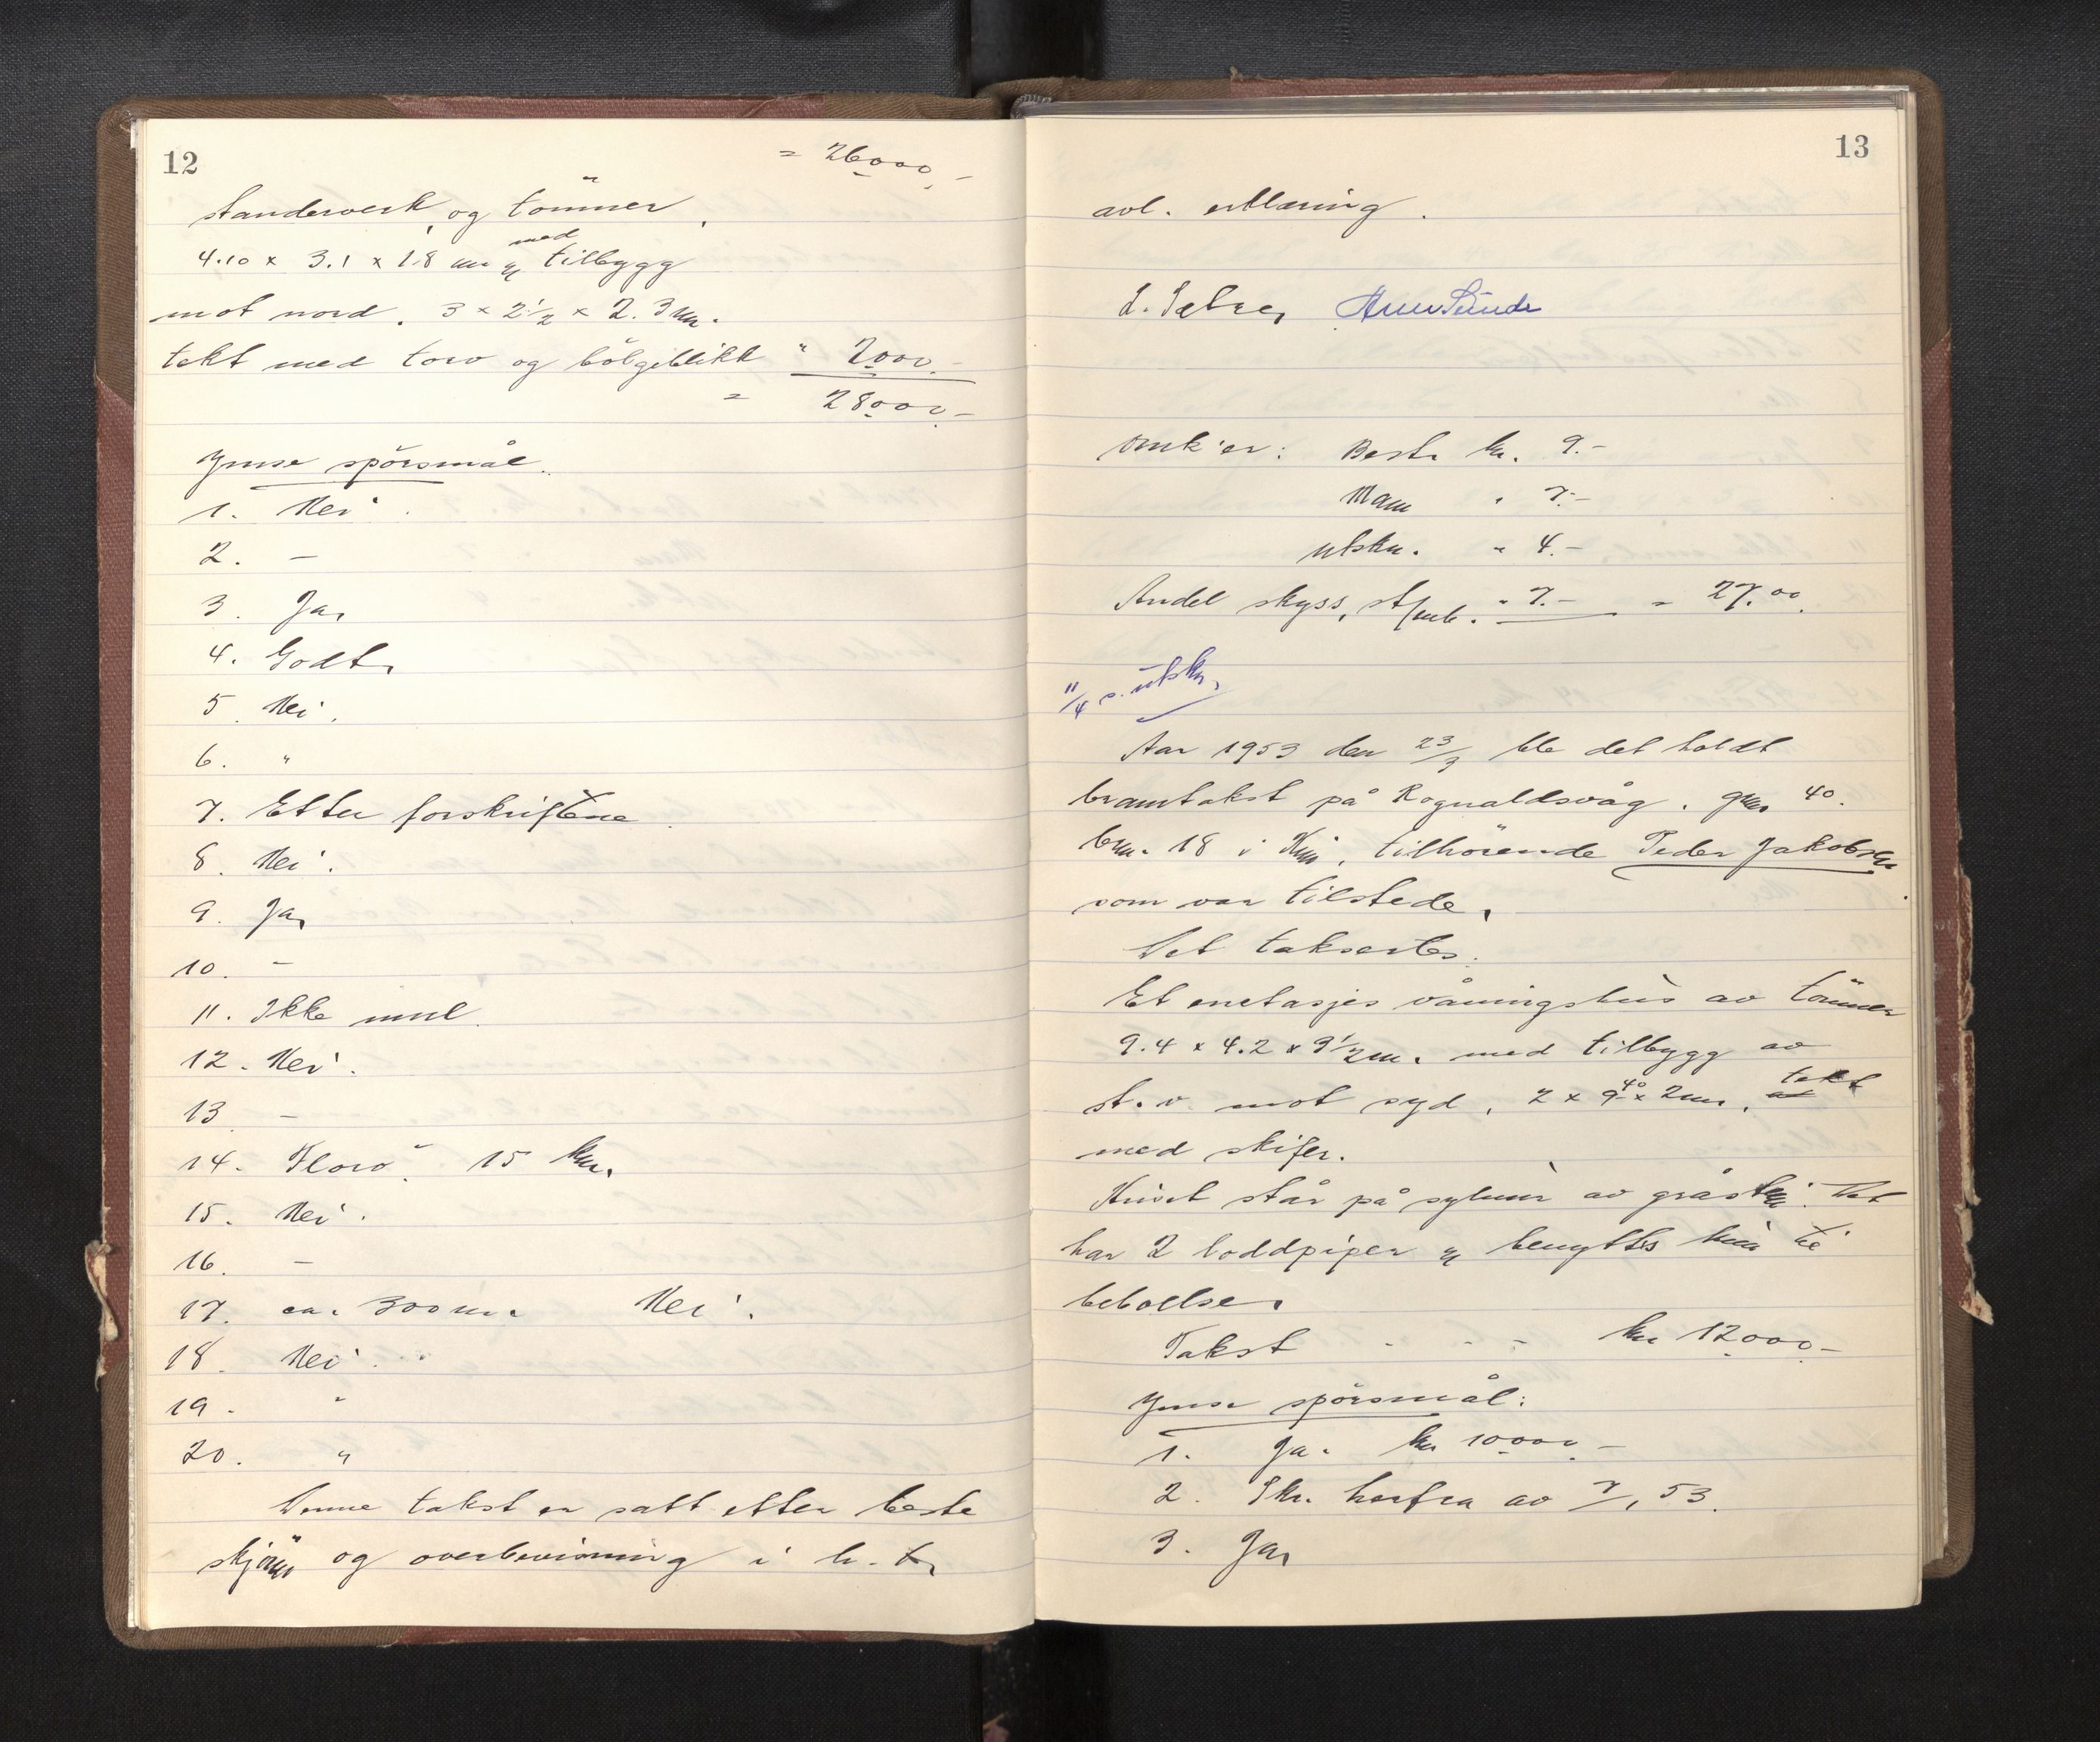 12
= 26000,-
standerverk, og tömmer.
4.10 x 3.1 x 1.8 m med tilbygg
mot nord. 3 x 2½ x 2.3 m.
tekt med torv og bölgeblikk " 2000.-
= 28000.-
Ymse spörsmål.
1. Nei.
2. -
3. Ja.
4. Godt.
5. Nei.
6. "
7. Etter forskriftene.
8. Nei.
9. Ja.
10. -
11. Ikke innl.
12. Nei.
13. -
14. Florö. 15 km.
15. Nei.
16. -
17. ca. 300 m. Nei.
18. Nei.
19. "
20. "
Denne takst er satt etter beste
skjönn og overbevisning i h. t.
13
avl. erklæring.
L. Sætre,
Omk'er: Best. kr. 9.-
Mann " 7.-
utskr. " 4.-
Andel skyss, " 7.- = 27.00
11/4 s. utskr.
Aar 1953 den 23/3 ble det holdt
branntakst på Rognaldsvåg. gnr. 40.
bnr. 18 i Kinn, tilhörende Peder Jakobsen
som var tilstede.
Det taksertes.
Et enetasjes våningshus av tömmer
9.4 x 4.2 x 3½ m. med tilbygg av
st.v. mot syd. 2 x 9.40 x 2 m, tekt
med skifer.
Huset står på sylmur av gråstein. Det
har 2 loddpiper og benyttes kun til
beboelse.
Takst - - - kr 12000.-
Ymse spörsmål:
1. Ja. kr 10000.-
2. Skr. herfra av 7/1 53.
3. Ja.